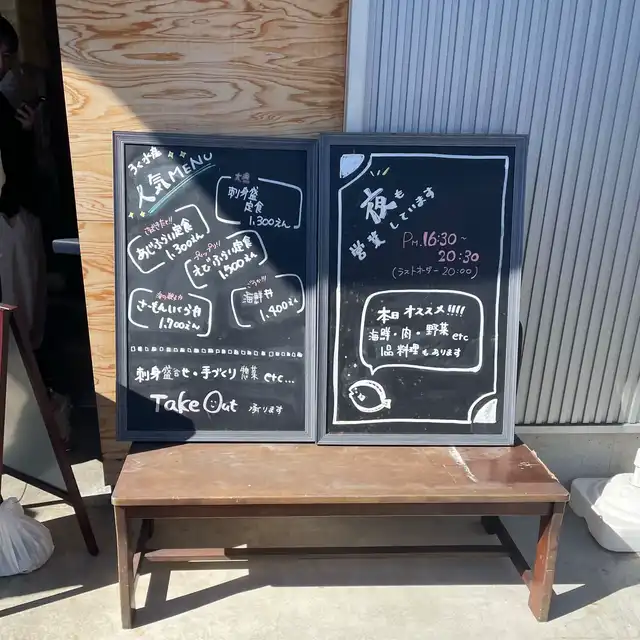 ろくさ産
人気MENU
大漁
刺身盛
定食
1,300えん
さばきたて!!
あじふらい定食
1,300えん
プリップリ!!
えびふらい定食
1,500えん
さーもんいくら丼
1,700えん
海鮮丼
1,400えん
刺身盛合せ・手づくり惣菜 etc...
Take Out 承ります
夜も
営業しています
PM.16:30~
20:30
(ラストオーダー20:00)
本日オススメ!!!!
海鮮・肉・野菜 etc
1品料理もあります